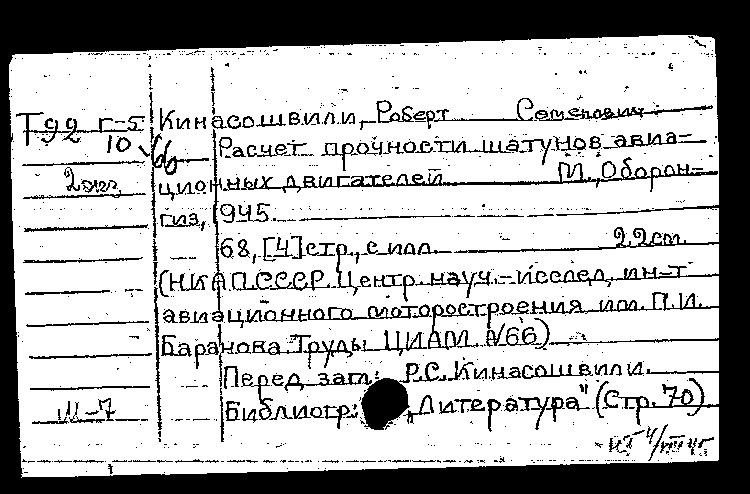 Т92 Г-5 Кинасошвили, Роберт Семенович
10 66 Расчет прочности шатунов авиа-
2экз. ционных двигателей М., Оборон-
гиз, 1945.
68, [4] стр., с илл. 22см.
(НКАП СССР. Центр. науч.-исслед. ин-т
авиационного моторостроения им. П.И.
Баранова. Труды ЦИАМ. №66)
Перед загл: Р.С. Кинасошвили.
Ш-7 Библиогр: "Литература" (Стр. 70)